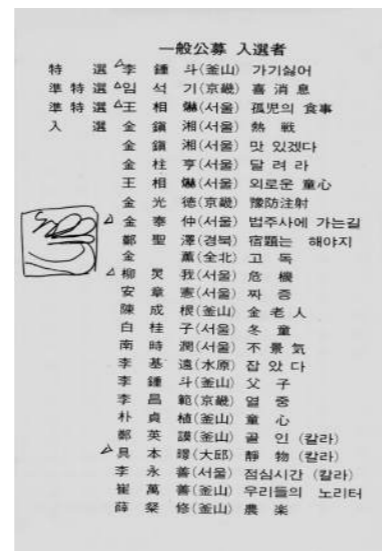 一般公募 入選者
特 選 △李 鍾 斗(釜山) 가기싫어
準特選 △임 석 기(京畿) 喜 消 息
準特選 △王 相 爀(서울) 孤児의 食事
入 選 金 鎭 湘(서울) 熱 戦
金 鎭 湘(서울) 맛 있겠다
金 柱 亨(서울) 달 려 라
王 相 爀(서울) 외로운 童心
金 光 徳(京畿) 豫防注射
△金 泰 仲(서울) 법주사에 가는길
鄭 聖 澤(경북) 宿題는 해야지
金 薫(全北) 고 독
△柳 炅 我(서울) 危 機
安 章 憲(서울) 짜 증
陳 成 根(釜山) 金 老 人
白 桂 子(서울) 冬 童
南 時 潤(서울) 不 景 気
李 基 遠(水原) 잡 았 다
李 鍾 斗(釜山) 父 子
李 昌 範(京畿) 열 중
朴 貞 植(釜山) 童 心
鄭 英 謨(釜山) 골 인 (칼라)
△具 本 (大邱) 靜 物 (칼라)
李 永 善(서울) 점심시간 (칼라)
崔 萬 善(釜山) 우리들의 노리터
薛 燦 修(釜山) 農 楽